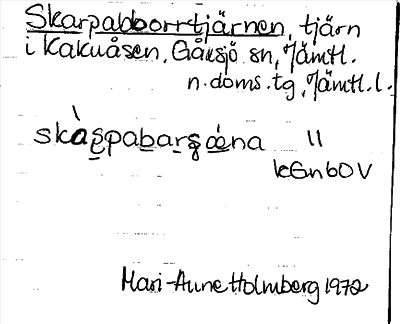 Skarpabborrtjärnen, tjärn
i Kakuåsen, Gåxsjö sn, Jämtl.
n. doms. tg, Jämtl. l.
skàs̱pabars̱œ́na "
Mari-Anne Holmberg 1972